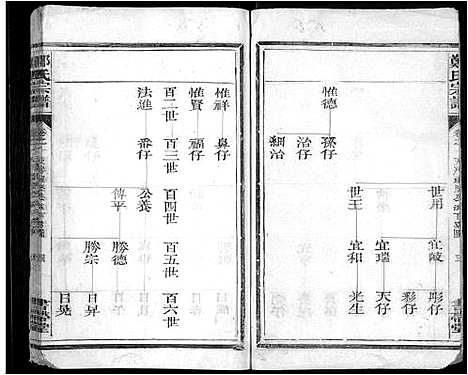 鄭氏宗譜
惟德
孫仔
治仔
細治
世用
宜岐
彤仔
彩仔
宜瑞
天仔
世王
宜和
光生
惟祥
鼻仔
惟賢
福仔
百二世
百三世
百四世
百五世
百六世
法進
番仔
公養
傳平
勝德
日昇
勝宗
日晃
鄭氏宗譜